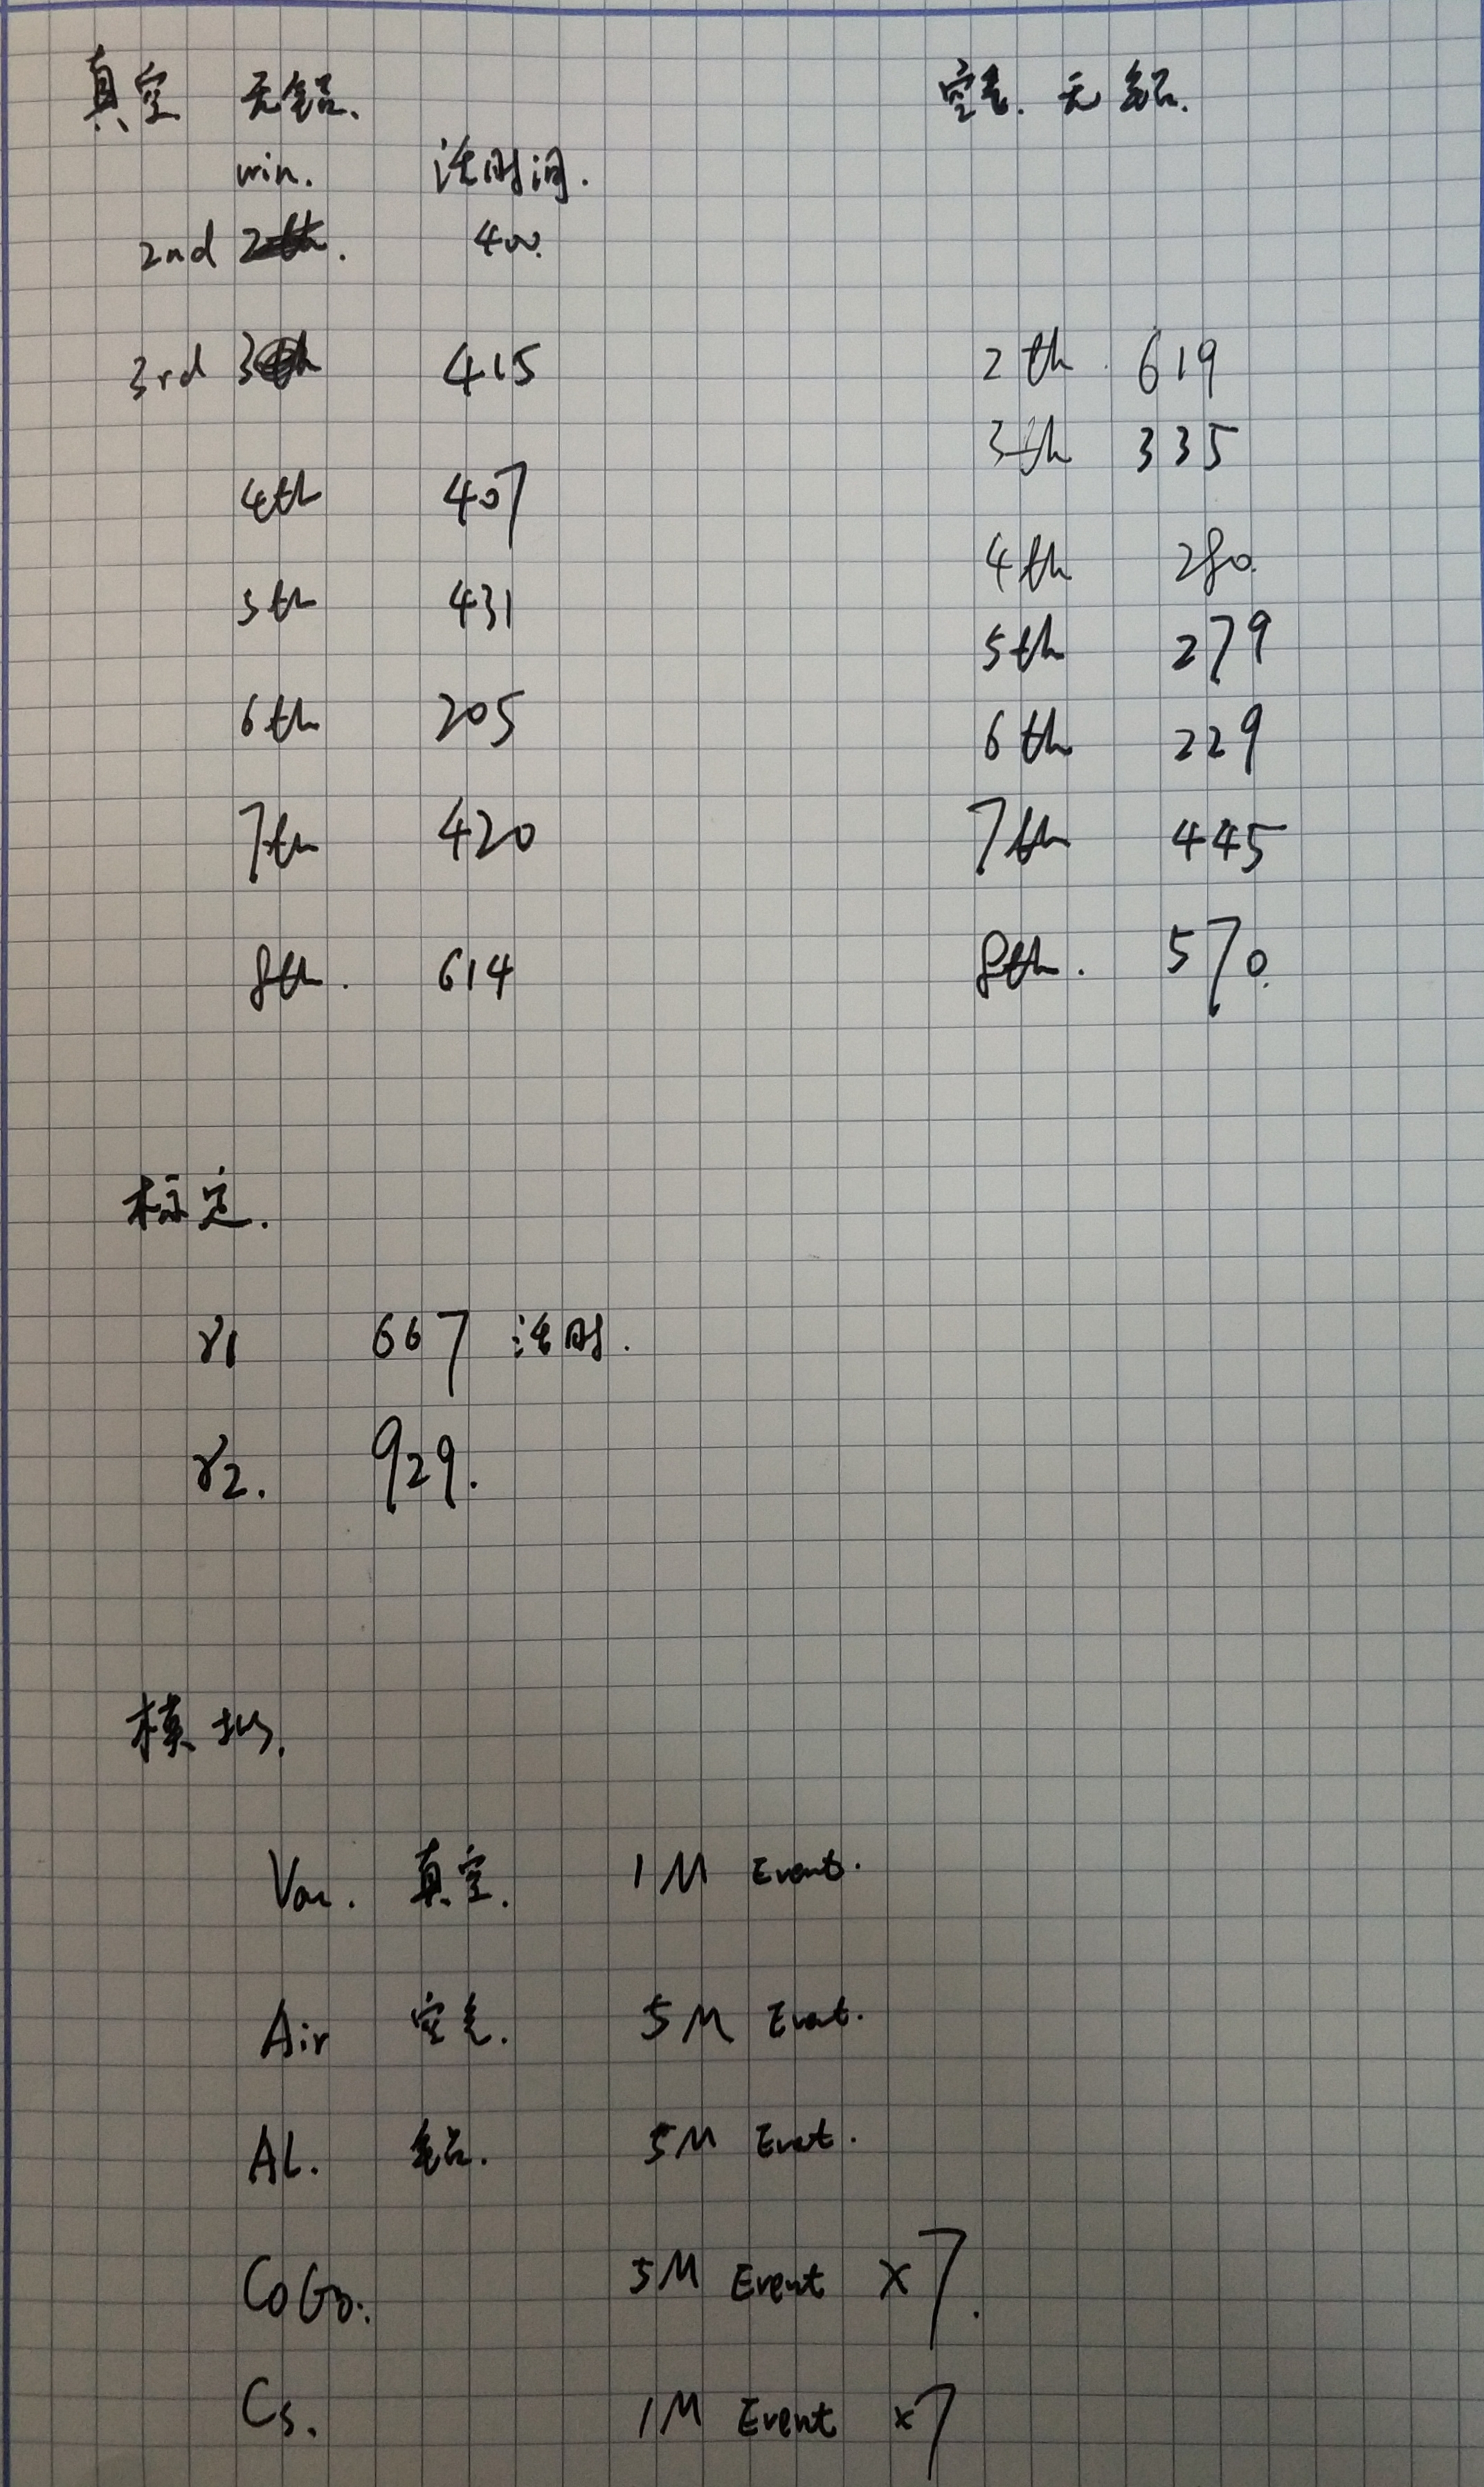 真空 无铝.
win. 活时间.
2nd 2th. 400.
3rd 3th 415
4th 407
5th 431
6th 205
7th 420
8th. 614
空气. 无铝.
2th. 619
3th 335
4th 280.
5th 279
6th 229
7th 445
8th. 570.
标定.
γ1 667 活时.
γ2. 929.
模拟.
Vac. 真空. 1M Events.
Air 空气. 5M Event.
AL. 铝. 5M Event.
Co60. 5M Event ×7.
Cs. 1M Event ×7